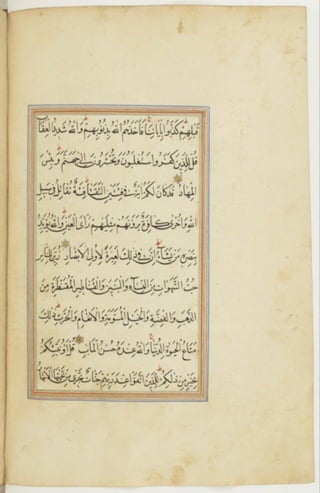 قبلهم كذبوا بآياتنا فأخذهم الله بذنوبهم والله شديد العقاب
قل للذين كفروا ستغلبون وتحشرون إلى جهنم وبئس
المهاد قد كان لكم آية في فئتين التقتا فئة تقاتل في سبيل
الله وأخرى كافرة يرونهم مثليهم رأي العين والله يؤيد
بنصره من يشاء إن في ذلك لعبرة لأولي الأبصار زين للناس
حب الشهوات من النساء والبنين والقناطير المقنطرة من
الذهب والفضة والخيل المسومة والأنعام والحرث ذلك
متاع الحيوة الدنيا والله عنده حسن المآب قل أؤنبئكم
بخير من ذلكم للذين اتقوا عند ربهم جنات تجري من تحتها الأنهار